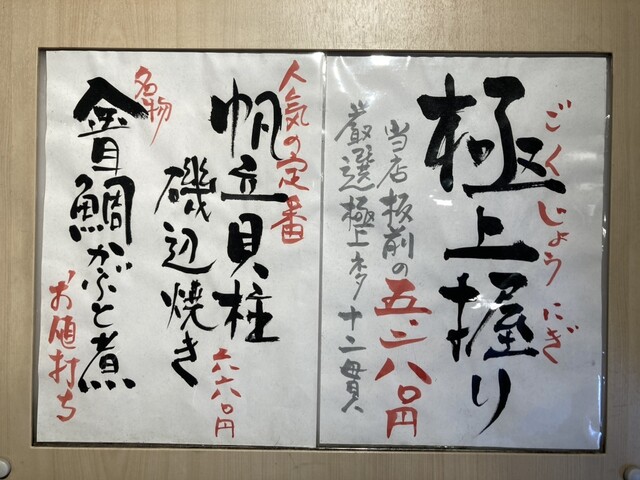 ごくじょうにぎ
極上握り
五二八〇円
当店板前の
厳選極上ネタ十二貫
人気の定番
帆立貝柱
磯辺焼き
六六〇円
名物
金目鯛かぶと煮
お値打ち